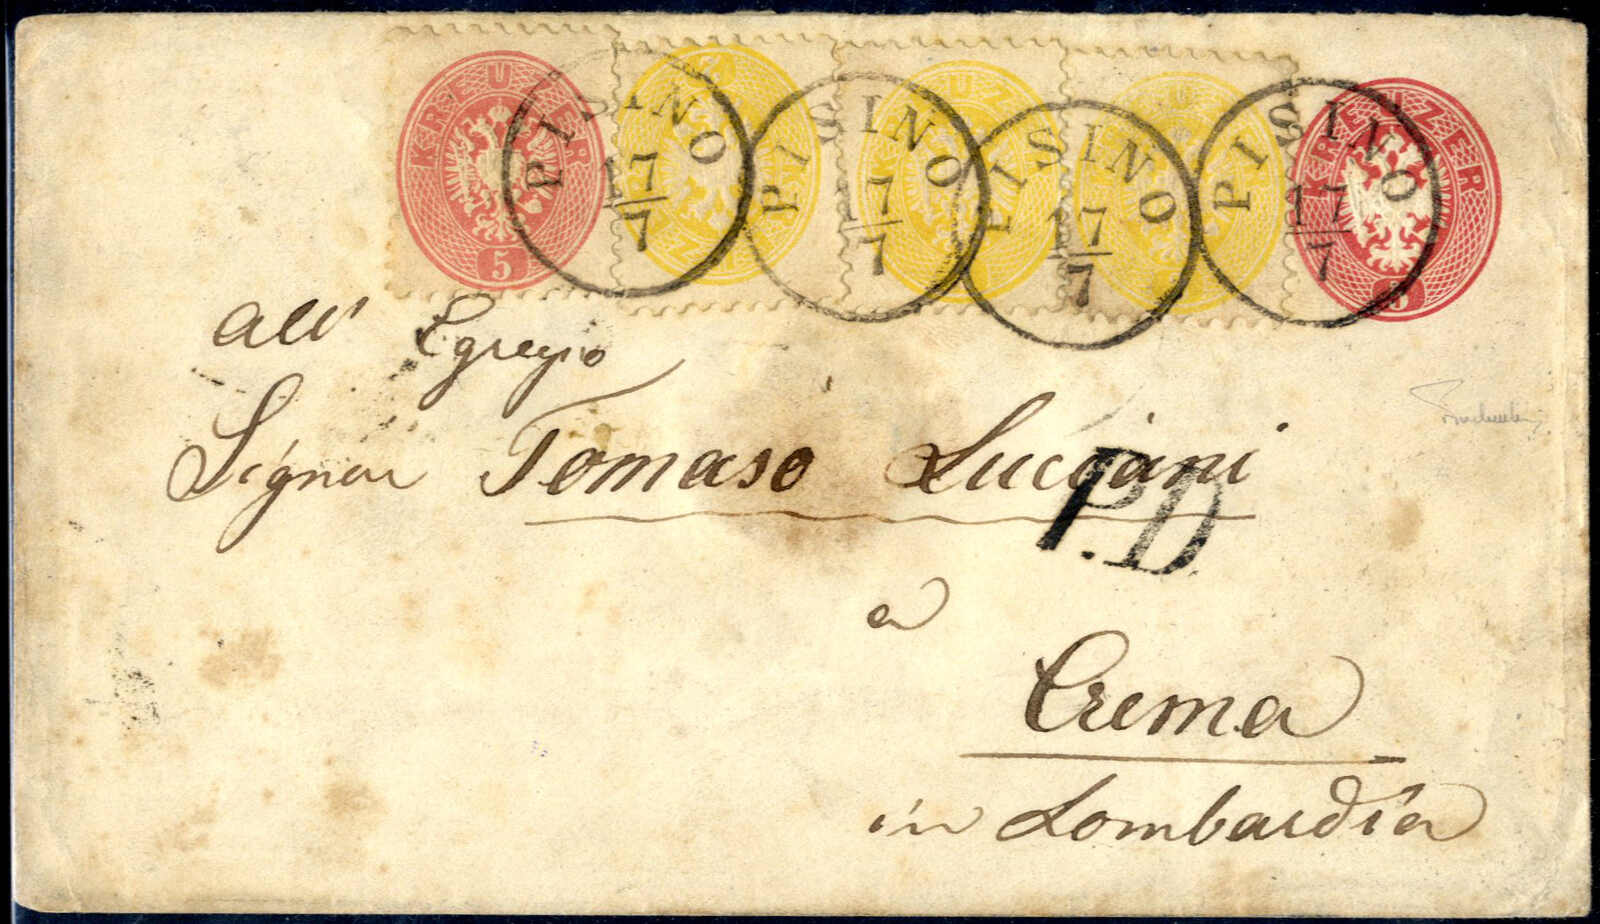 KREUZER 5
KREUZER
KREUZER 5
PISINO 17/7
PISINO 17/7
PISINO 17/7
PISINO 17/7
all' Egregio
Signor Tomaso Luciani
P.D.
a
Crema
in Lombardia